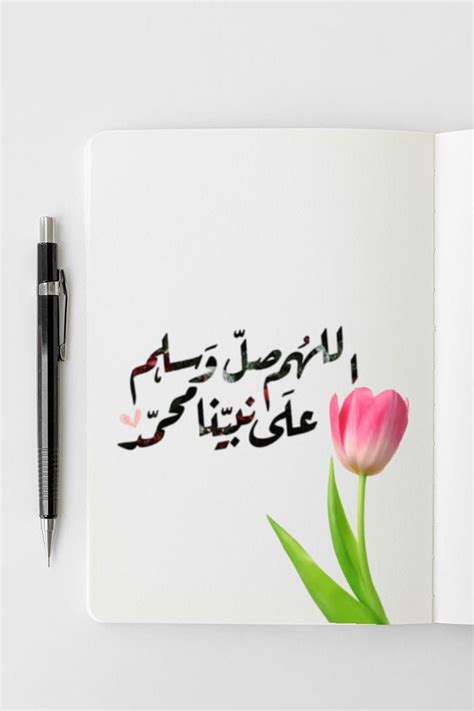 اللهُم صلّ وَسلم
علَى نبيّنا محمّد